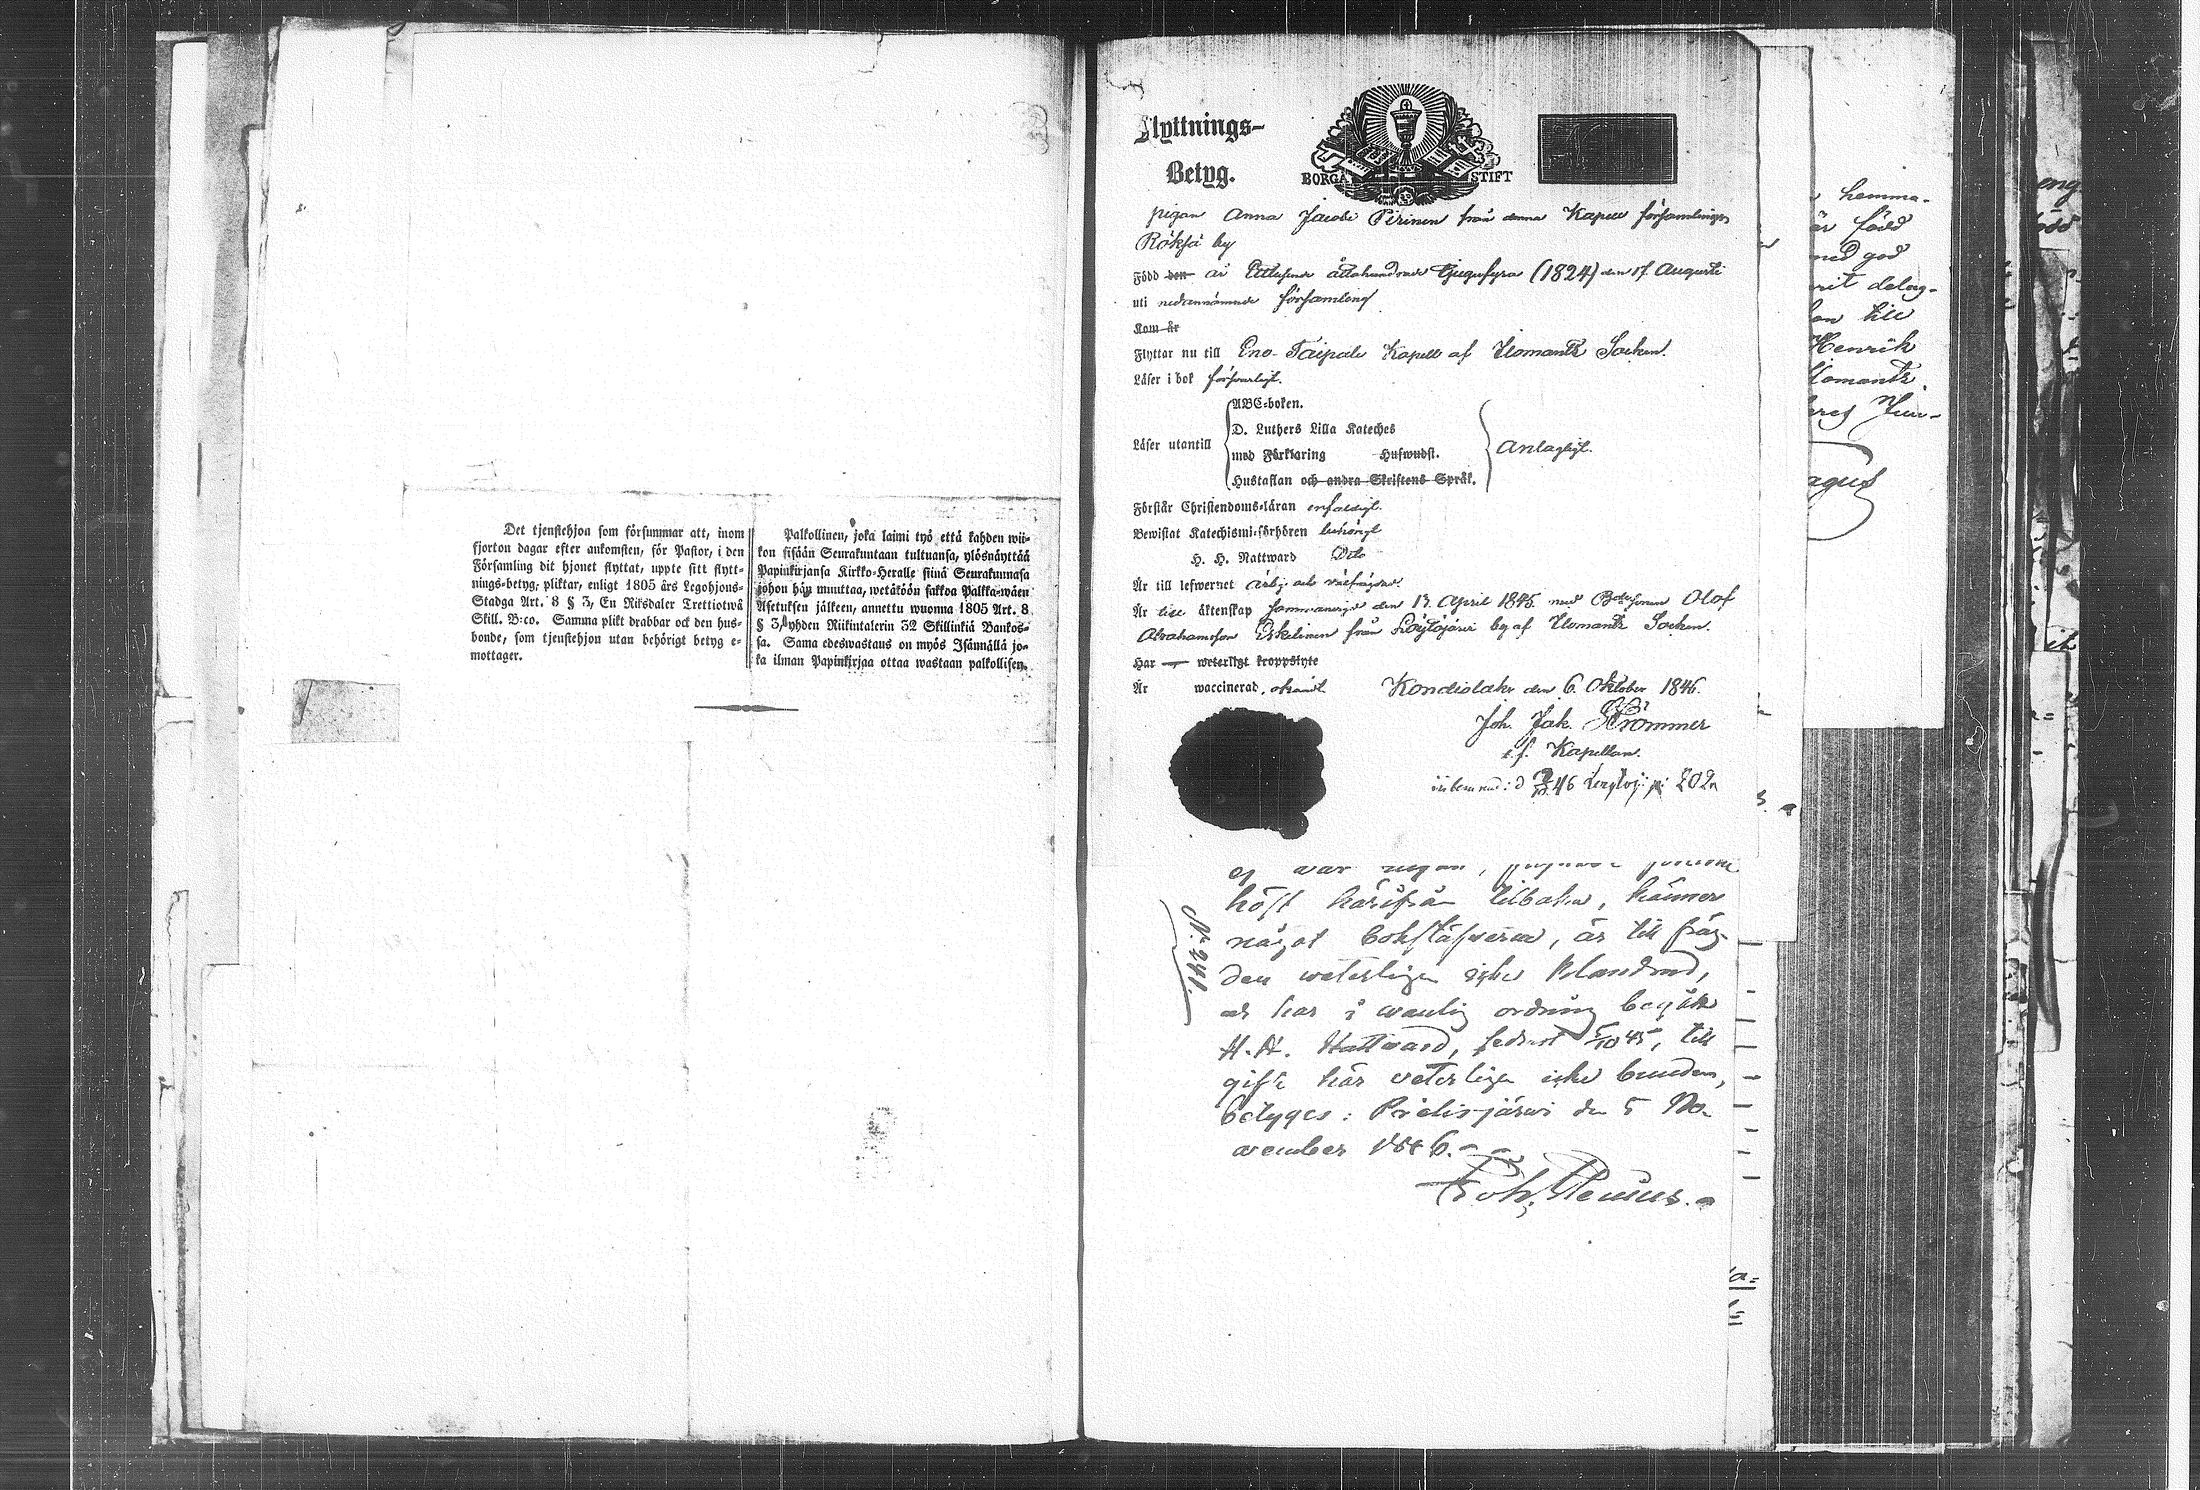 Det tjenstehjon som försummar att, inom
fjorton dagar efter ankomsten, för Pastor, i den
Församling dit hjonet flyttat, uppte sitt flytt-
nings-betyg, pliktar, enligt 1805 års Legohjons-
Stadga Art. 8 § 3, En Riksdaler Trettiotwå
Skill. B:co. Samma plikt drabbar ock den hus-
bonde, som tjenstehjon utan behörigt betyg e-
mottager.
Palkollinen, joka laimi työ että kahden wii-
kon sisään Seurakuntaan tultuansa, ylösnäyttää
Papinkirjansa Kirkko-Heralle siinä Seurakunnasa
johon hän muuttaa, wetäköön sakkoa Palkka-wäen
Asetuksen jälkeen, annettu wuonna 1805 Art. 8
§ 3, yhden Riikintalerin 32 Skillinkiä Bankos-
sa. Sama edeswastaus on myös Isännällä jo-
ka ilman Papinkirjaa ottaa wastaan palkollisen.
Flyttnings-
Betyg.
BORGÅ STIFT
pigan Anna Jacobs Pirinen från denna Kapell församlings
Röksä by
Född den år Ettusende åttahundrade tjugufyra (1824) den 17 Augusti
uti nedannämnde församling
Kom år
Flyttar nu till Eno-Taipale Kapell af Ilomants Socken.
Läser i bok försvarligt.
ABC-boken.
D. Luthers Lilla Kateches
Läser utantill
med Förklaring Hufwudst.
Antagligt.
Hustaflan och andra Skriftens Språk.
Förstår Christendoms-läran enfaldigt.
Bewistat Katechismi-förhören behörigt
H. H. Nattward Dito
Är till lefwernet ärlig och välfrägdad.
Är till äktenskap sammanvigd den 13 April 1845 med Olof
Abrahamsson Eskelinen från by af Ilomants Socken.
Har weterligt kroppslyte
Är waccinerad, okändt. Kondiolaks den 6 Oktober 1846.
Joh. Jak. Strömmer
t.f. Kapellan.
46 202
ej var
höst härifrån tillbaka, känner
något bokstäfverna, är till fräg-
den weterligen icke klandrad,
och har i wanlig ordning begått
H. H. Nattward, sednast 5/10 45, till
gifte här veterligen icke bunden,
betyges: Pielisjärvi den 5 No-
vember 1846.
N:o 241.
hemma-
är född
med god
till
Henrik
Ilomants